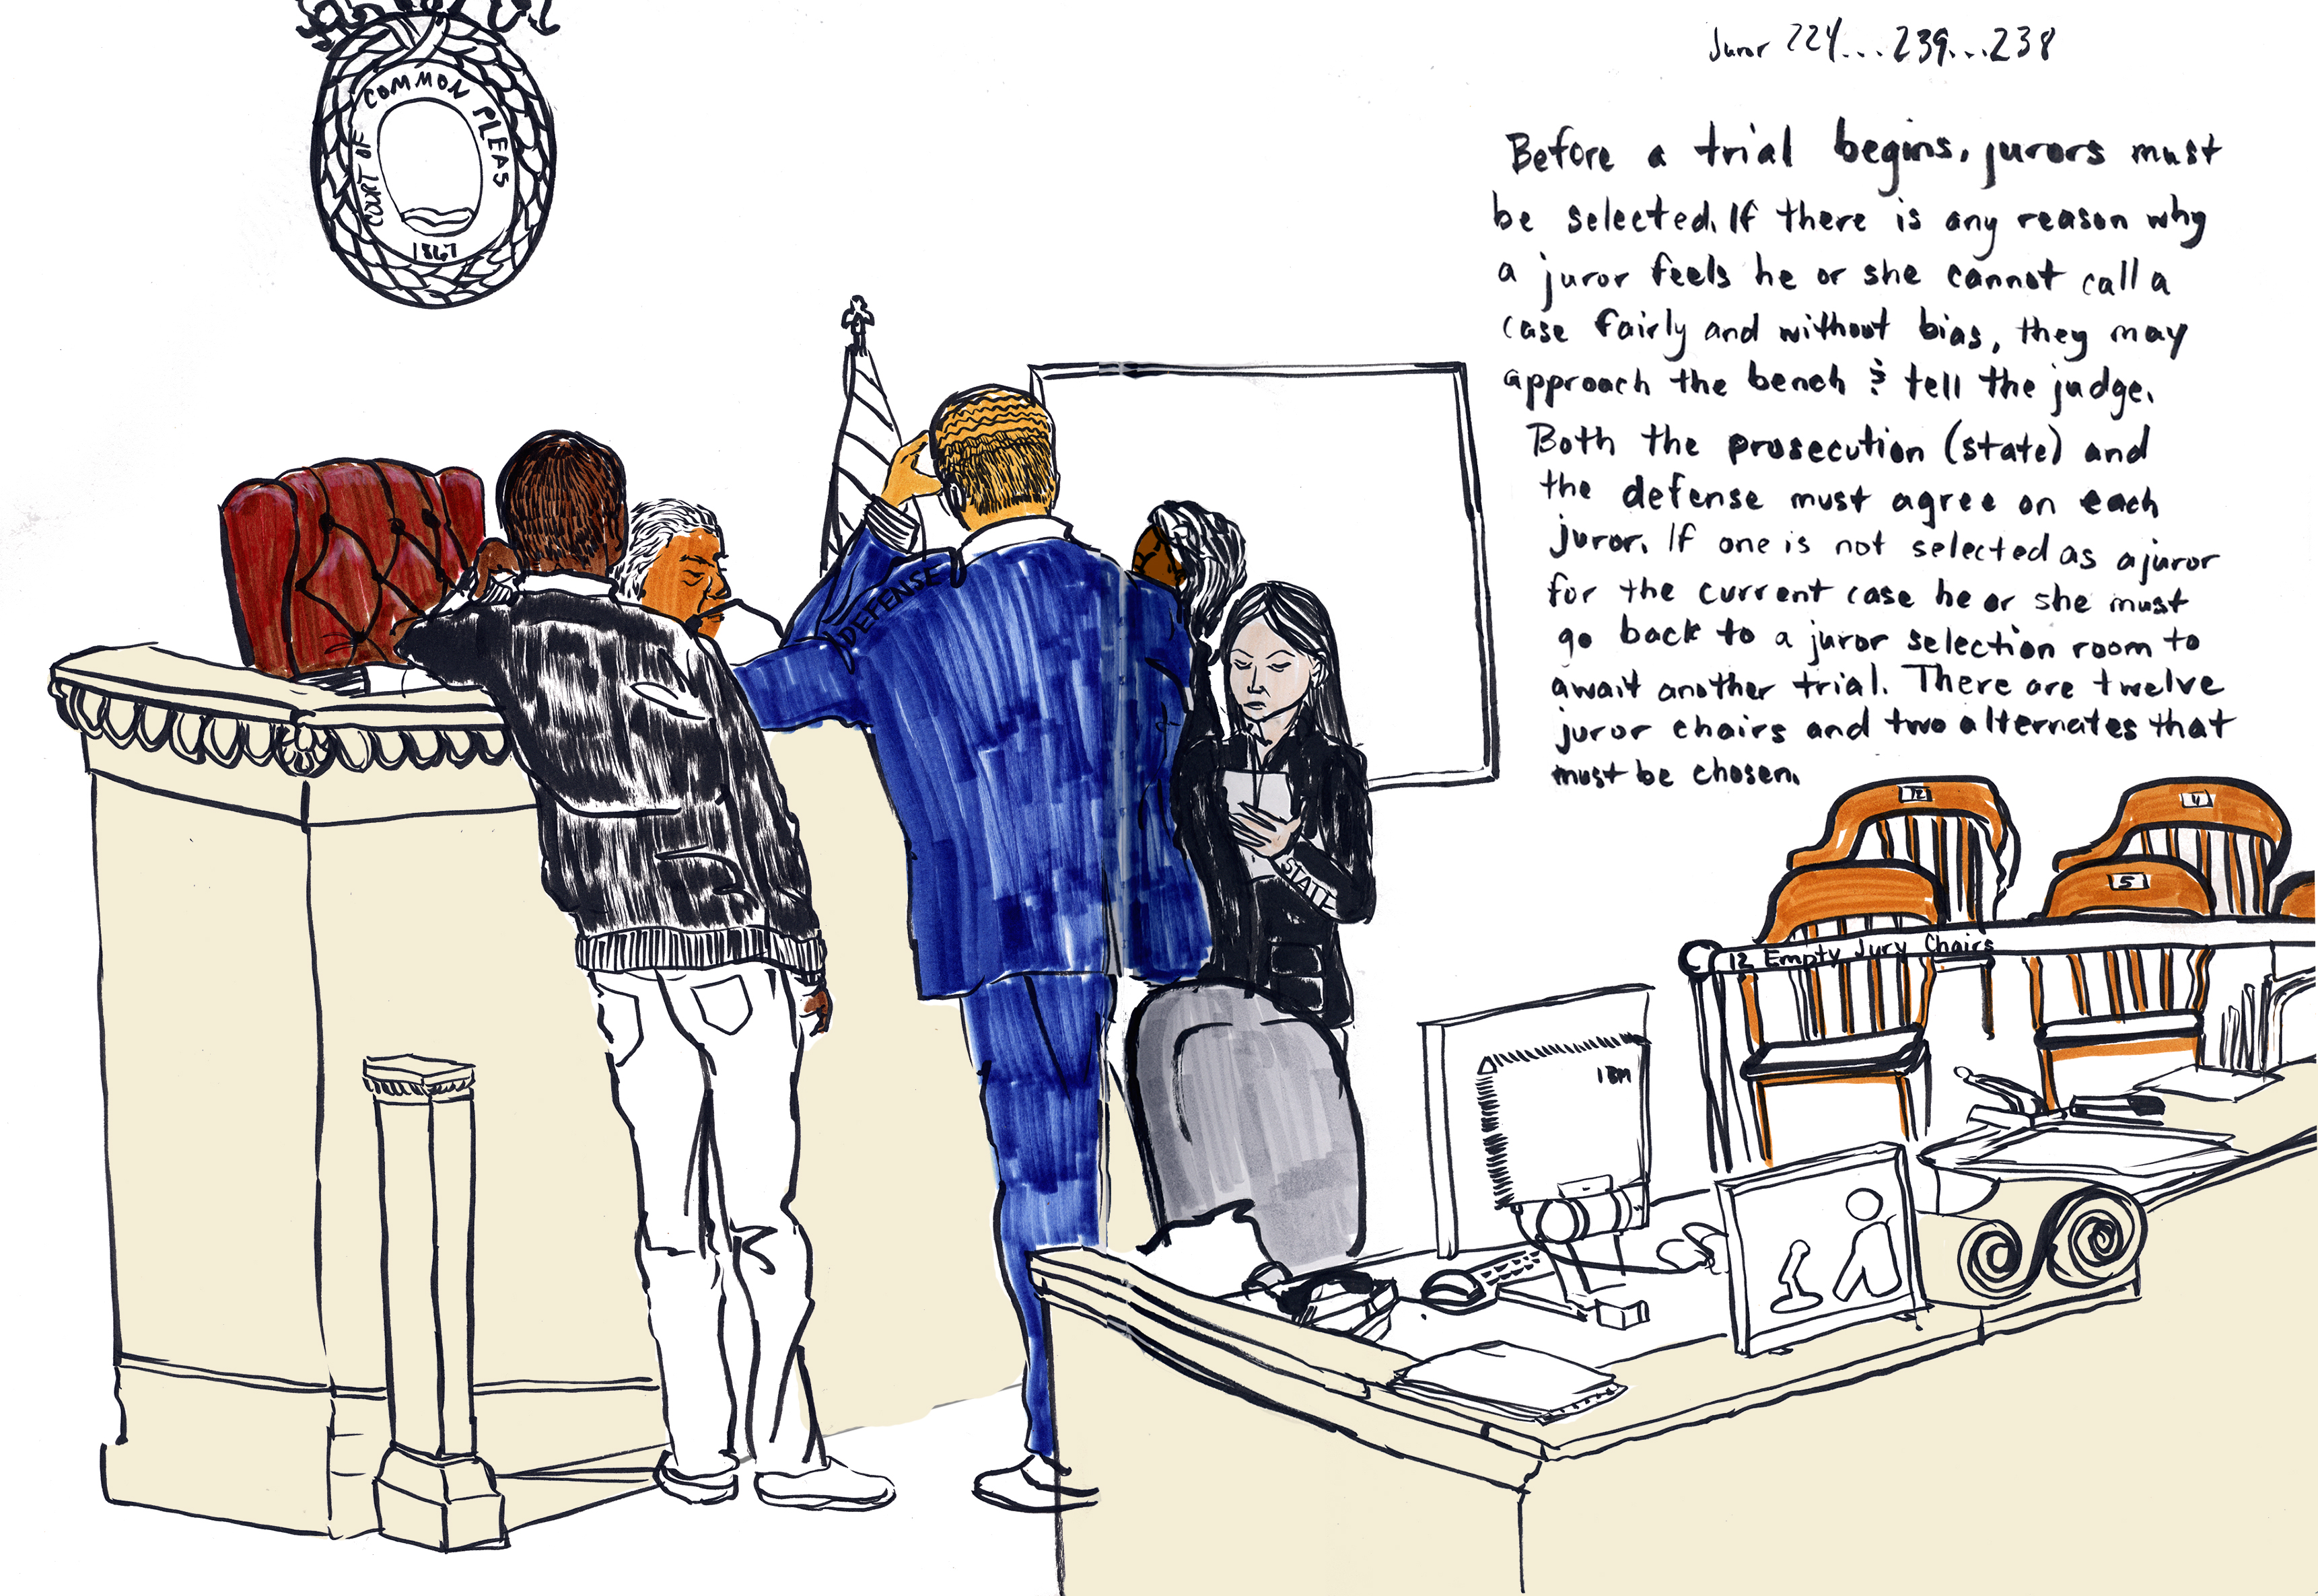 COURT OF COMMON PLEAS
1867
Juror 224...239...238
Before a trial begins, jurors must
be selected. If there is any reason why
a juror feels he or she cannot call a
case fairly and without bias, they may
approach the bench & tell the judge.
Both the prosecution (state) and
the defense must agree on each
juror. If one is not selected as a juror
for the current case he or she must
go back to a juror selection room to
await another trial. There are twelve
juror chairs and two alternates that
must be chosen.
DEFENSE
STATE
12
11
5
12 Empty Jury Chairs
IBM